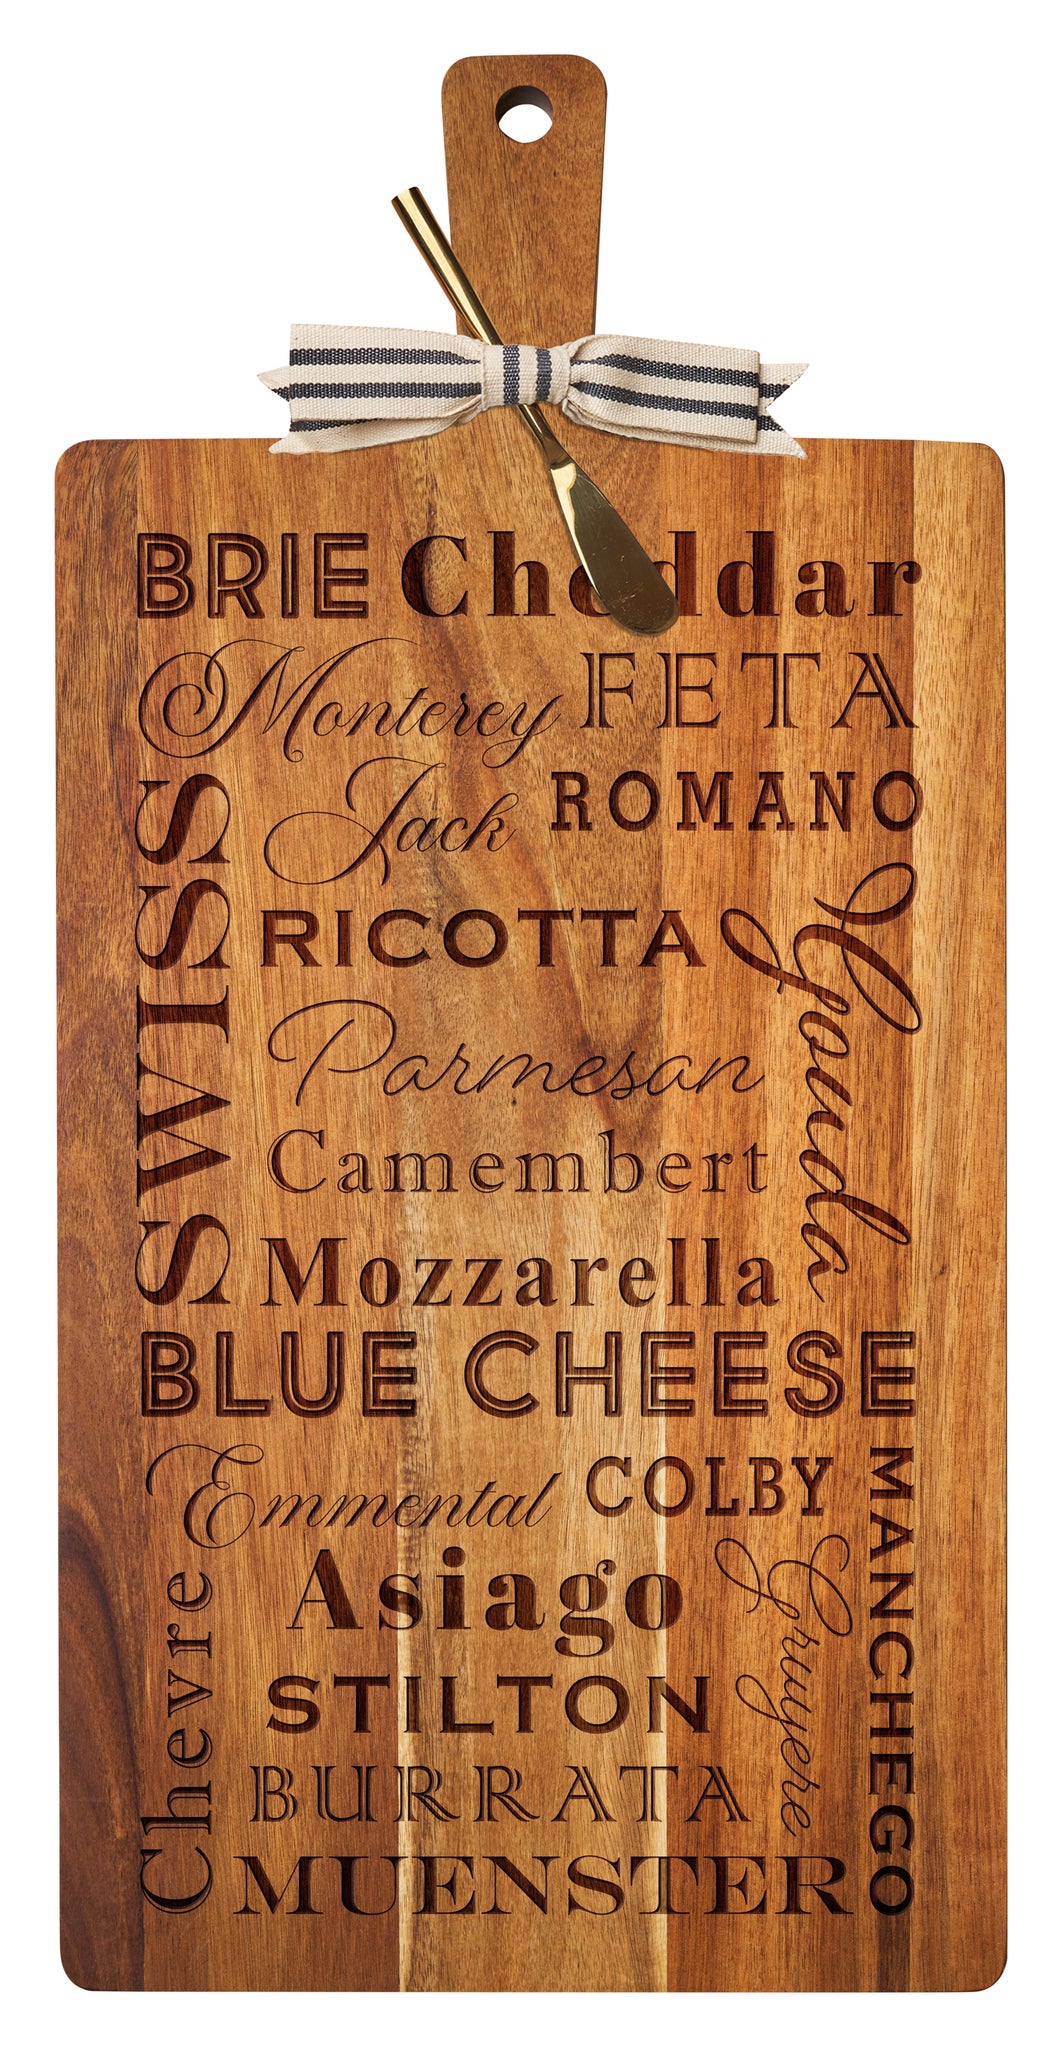 BRIE Cheddar
Monterey Jack
FETA
ROMANO
SWISS
RICOTTA
Gouda
Parmesan
Camembert
Mozzarella
BLUE CHEESE
Emmental
COLBY
MANCHEGO
Asiago
Gruyere
Chevre
STILTON
BURRATA
MUENSTER